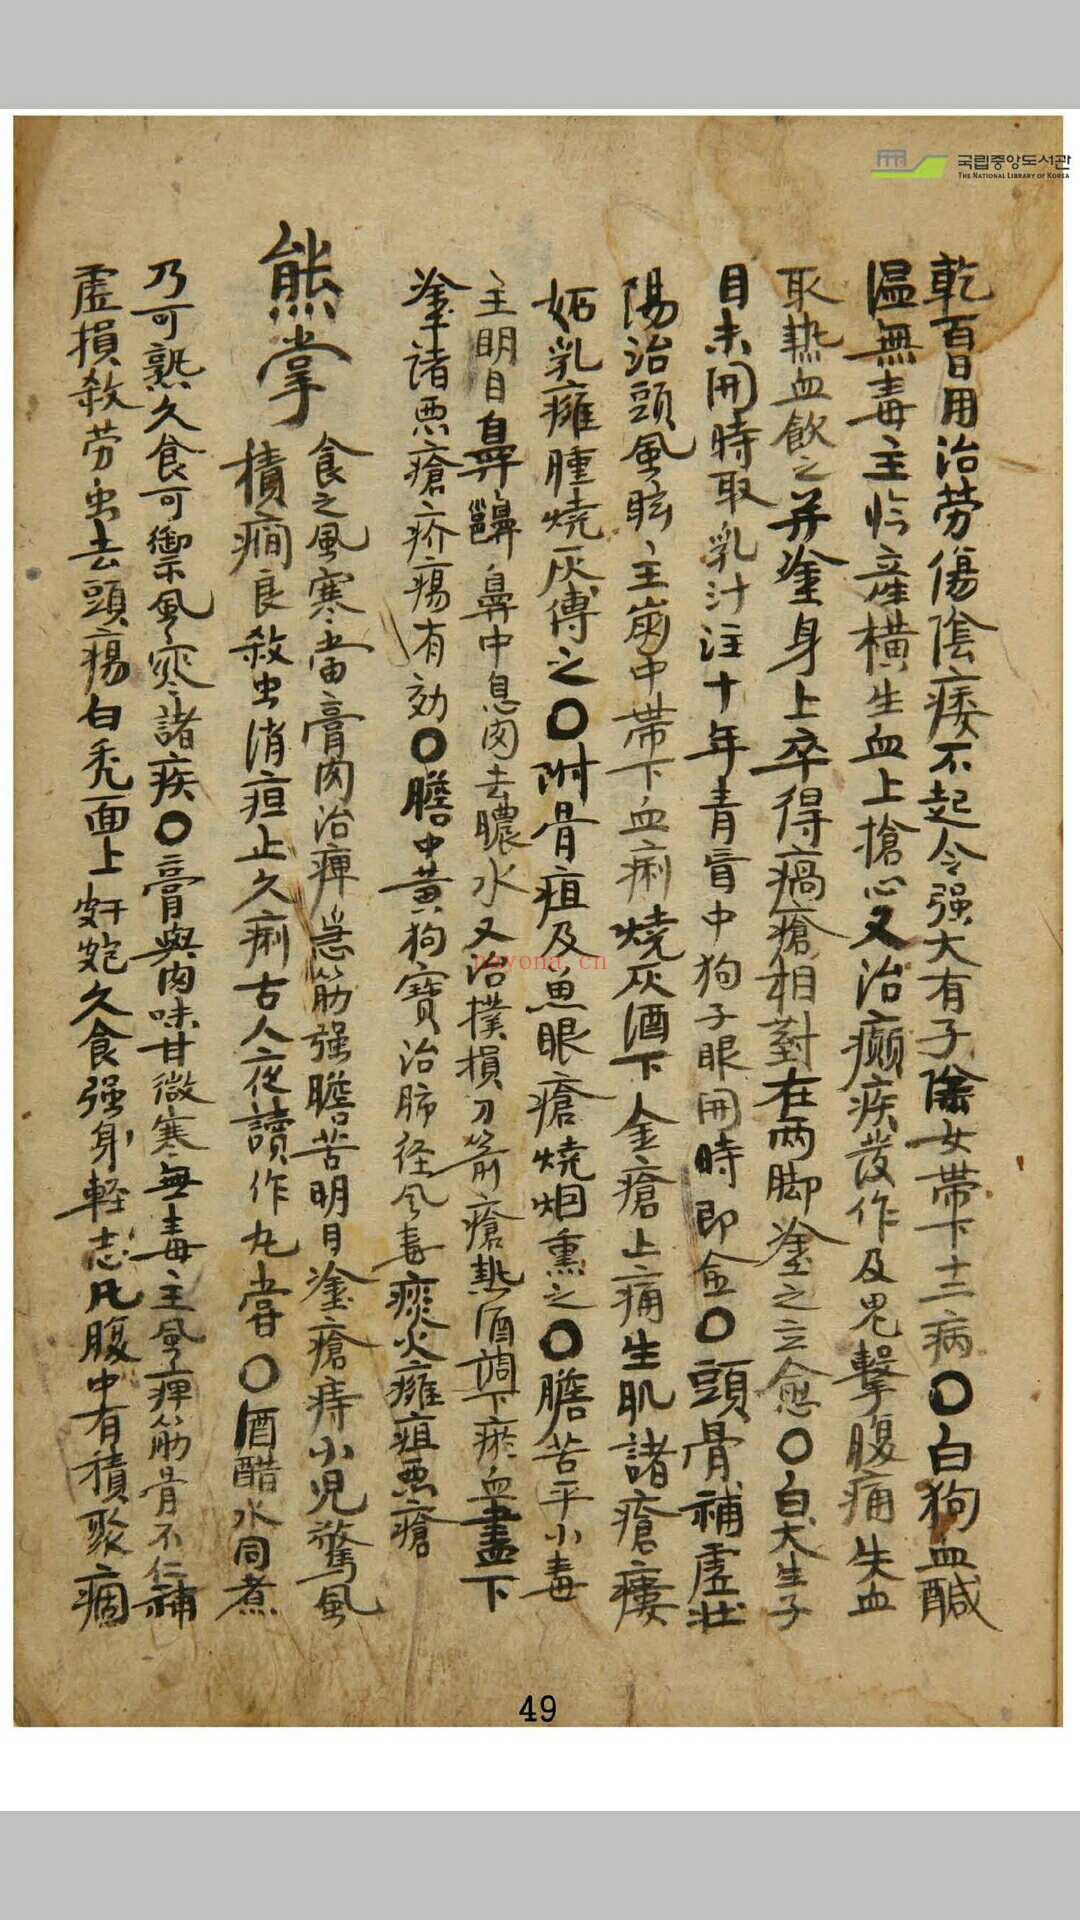 국립중앙도서관
THE NATIONAL LIBRARY OF KOREA
乾百日用治劳傷陰痿不起令强大有子除女帶下十二病〇白狗血醎
温無毒主临産橫生血上搶心又治癲疾發作及鬼擊腹痛失血
取热血飲之并塗身上卒得瘑瘡相對在两脚塗之立愈〇白犬生子
目未開時取乳汁注十年青盲中狗子眼開時即〇頭骨補虚壮
陽治頭風眩主崩中帶下血痢燒灰酒下金瘡止痛生肌諸瘡瘻
妬乳癰腫燒灰傅之〇附骨疽及魚眼瘡燒烟熏之〇膽苦平小毒
主明目鼻齆鼻中息肉去膿水又治撲損刀箭瘡热酒調下瘀血盡下
塗諸悪瘡疥瘍有効〇膽中黄狗寳治肺径風毒痰火癰疽悪瘡
熊掌
食之風寒當膏肉治痺急筋强膽苦明目塗瘡痔小児驚風
積癎良殺虫消疸止久痢古人夜讀作丸嘗〇酒醋水同煮
乃可熟久食可禦風寒諸疾〇膏與肉味甘微寒無毒主風痺筋骨不仁補
虚損殺劳虫去頭瘍白秃面上皯皰久食强身軽志凡腹中有積聚痼
nayona.cn
49